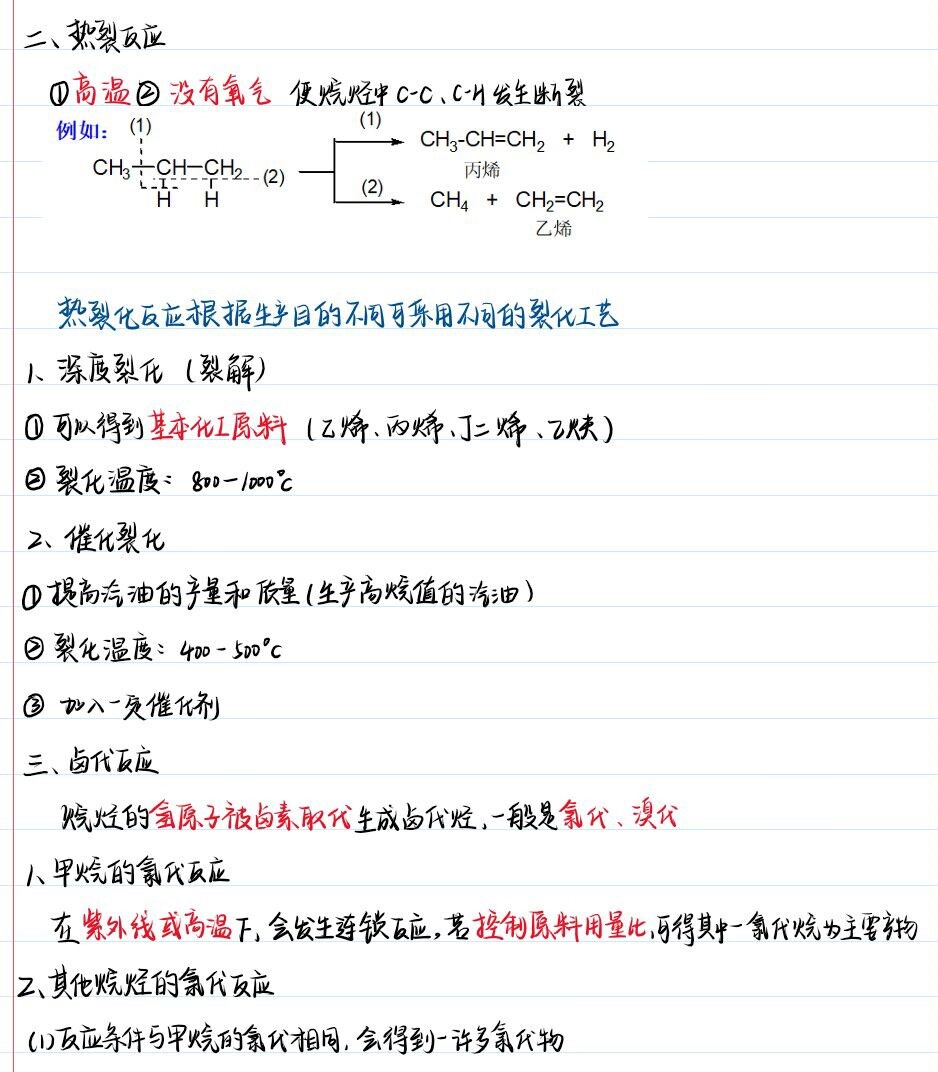 二、热裂反应
①高温②没有氧气 使烷烃中C-C、C-H发生断裂
例如: (1) (1) CH3-CH=CH2 + H2
CH3-CH-CH2 (2) 丙烯
H H (2) CH4 + CH2=CH2
乙烯
热裂化反应根据生产目的不同可采用不同的裂化工艺
1、深度裂化（裂解）
①可以得到基本化工原料（乙烯、丙烯、丁二烯、乙炔）
②裂化温度：800-1000°C
2、催化裂化
①提高汽油的产量和质量(生产高烷值的汽油）
②裂化温度：400-500°C
③ 加入一定催化剂
三、卤代反应
烷烃的氢原子被卤素取代生成卤代烃,一般是氯代、溴代
1、甲烷的氯代反应
在紫外线或高温下,会发生连锁反应,若控制原料用量比,可得其中一氯代烷为主要产物
2、其他烷烃的氯代反应
(1)反应条件与甲烷的氯代相同,会得到一许多氯代物